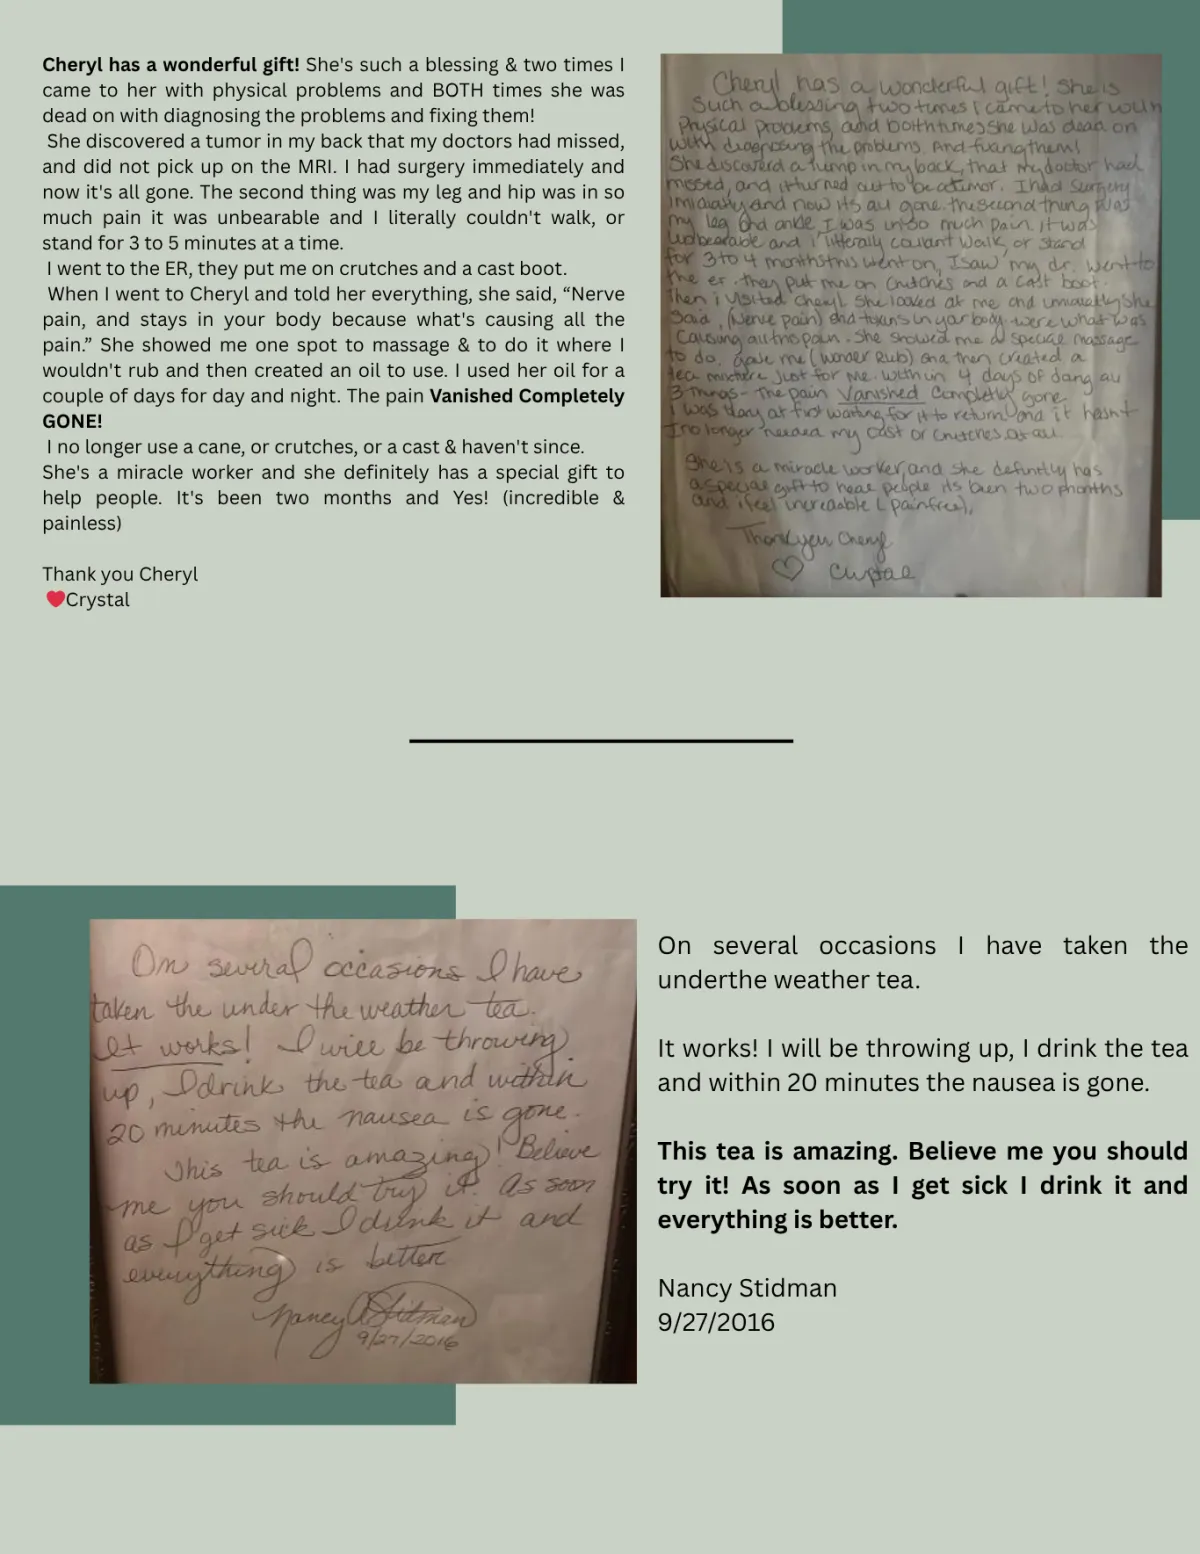 Cheryl has a wonderful gift! She's such a blessing & two times I
came to her with physical problems and BOTH times she was
dead on with diagnosing the problems and fixing them!
She discovered a tumor in my back that my doctors had missed,
and did not pick up on the MRI. I had surgery immediately and
now it's all gone. The second thing was my leg and hip was in so
much pain it was unbearable and I literally couldn't walk, or
stand for 3 to 5 minutes at a time.
I went to the ER, they put me on crutches and a cast boot.
When I went to Cheryl and told her everything, she said, “Nerve
pain, and stays in your body because what's causing all the
pain.” She showed me one spot to massage & to do it where I
wouldn't rub and then created an oil to use. I used her oil for a
couple of days for day and night. The pain Vanished Completely
GONE!
I no longer use a cane, or crutches, or a cast & haven't since.
She's a miracle worker and she definitely has a special gift to
help people. It's been two months and Yes! (incredible &
painless)
Thank you Cheryl
❤️Crystal
Cheryl has a wonderful gift! She is
Such a blessing two times I came to her with
Physical problems, and boith times She was dead on
with diagnosing the problems. And fixing them!
She discoverd a lump in my back, that my doctor had
missed, and it turned out to be a tumor. I had Surgery
and now its all gone. the second thing was
my leg and ankle I was in so much pain it was
unbearable and i litterally couldnt walk, or stand
for 3 to 4 months this went on, I saw my dr. went to
the er. they put me on crutches and a cast boot.
Then i visited Cheryl She looked at me and She
Said, (Nerve pain) and in your body were what was
Causing all this pain. She showed me a special massage
to do. gave me (wonder Rub) and then created a
tea mixture Just for me. within 4 days of doing all
3 things - The pain Vanished Completely gone
I was at first waiting for it to return and it hasnt
I no longer needed my cast or crutches at all
She is a miracle worker, and she has
a special gift to heal people its been two months
and i feel (painfree).
Thank you Cheryl
♡ Crystal
On several occasions I have
taken the under the weather tea.
It works! I will be throwing
up, I drink the tea and within
20 minutes the nausea is gone.
This tea is amazing! Believe
me you should try it. As soon
as I get sick I drink it and
everything is better
Nancy Stidman
9/27/2016
On several occasions I have taken the
underthe weather tea.
It works! I will be throwing up, I drink the tea
and within 20 minutes the nausea is gone.
This tea is amazing. Believe me you should
try it! As soon as I get sick I drink it and
everything is better.
Nancy Stidman
9/27/2016